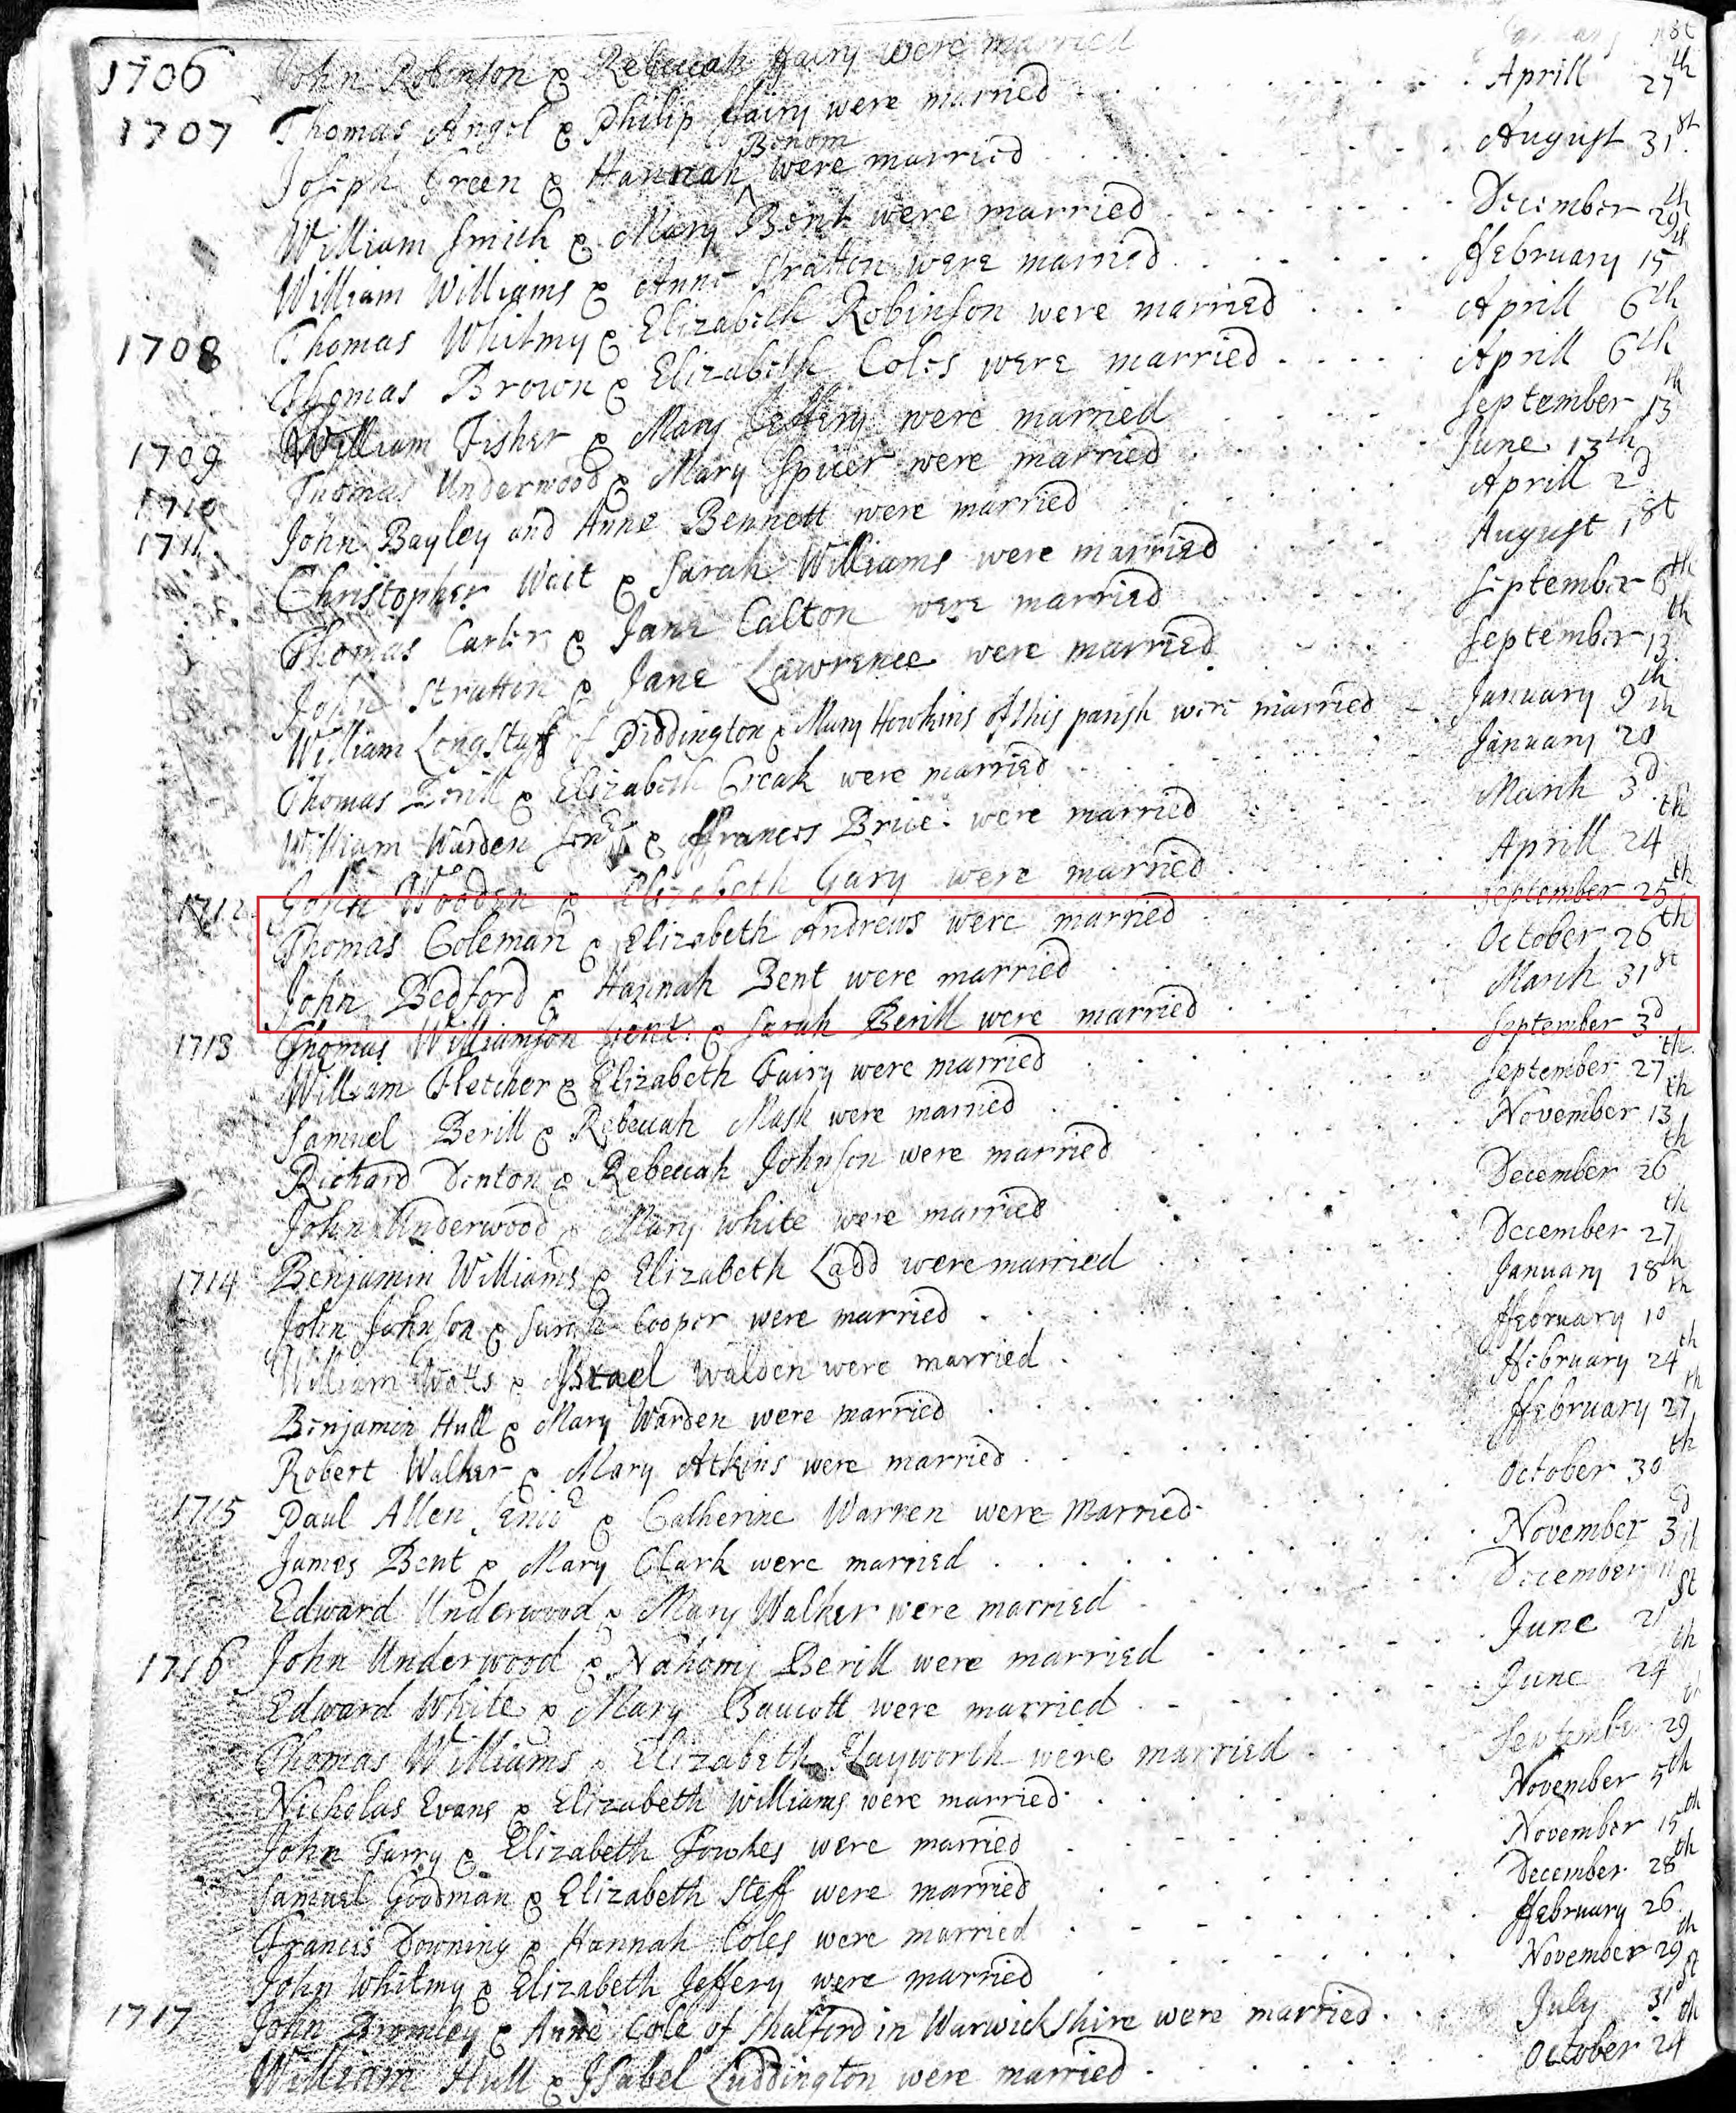 1706 John Robinson & Rebeccah ffairy were married January 1st
1707 Thomas Angel & Philip ffairy were married Aprill 27th
Joseph Green & Hannah ^Bonom were married August 31st
William Smith & Mary Bent were married December 29th
William Williams & Anne Stratton were married ffebruary 15th
1708 Thomas Whitmy & Elizabeth Robinson were married Aprill 6th
Thomas Brown & Elizabeth Coles were married Aprill 6th
William Fisher & Mary Jeffery were married September 13th
1709 Thomas Underwood & Mary Spicer were married June 13th
1710 John Bayley and Anne Bennett were married Aprill 2d
1711 Christopher Wait & Sarah Williams were married August 1st
Thomas Carter & Jane Calton were married September 6th
John Stratten & Jane Lawrence were married September 13th
William Longstaff of Diddington & Mary Howkins of this parish were married January 9th
Thomas Berill & Elizabeth Creak were married January 20th
William Warden & ffrances Brice were married March 3d
1712 John Wooden & Elizabeth Gary were married Aprill 24th
Thomas Coleman & Elizabeth Andrews were married September 25th
John Bedford & Hannah Bent were married October 26th
1713 Thomas Williamson Gent: & Sarah Berill were married March 31st
William Fletcher & Elizabeth Fairy were married September 3d
Samuel Berill & Rebeccah Mash were married September 27th
Richard Denton & Rebeccah Johnson were married November 13th
John Underwood & Mary White were married December 26th
1714 Benjamin Williams & Elizabeth Ladd were married December 27th
John Johnson & Sarah Cooper were married January 18th
William Watts & Israel Walden were married ffebruary 10th
Benjamin Hull & Mary Warden were married ffebruary 24th
Robert Walker & Mary Atkins were married ffebruary 27th
1715 Paul Allen Senior & Catherine Warren were Married October 30th
James Bent & Mary Clark were married November 3d
Edward Underwood & Mary Walker were married December 11th
1716 John Underwood & Nahomy Berill were married June 21st
Edward White & Mary Baucott were married June 24th
Thomas Williams & Elizabeth Hayworth were married September 29th
Nicholas Evans & Elizabeth Williams were married November 5th
John Farry & Elizabeth Fowkes were married November 15th
Samuel Goodman & Elizabeth Steff were married December 28th
Francis Downing & Hannah Coles were married ffebruary 26
John Whitmy & Elizabeth Jeffery were married November 29th
1717 John Bromley & Anne Cole of Shulford in Warwickshire were married July 31st
William Hull & Isabel Luddington were married October 24th